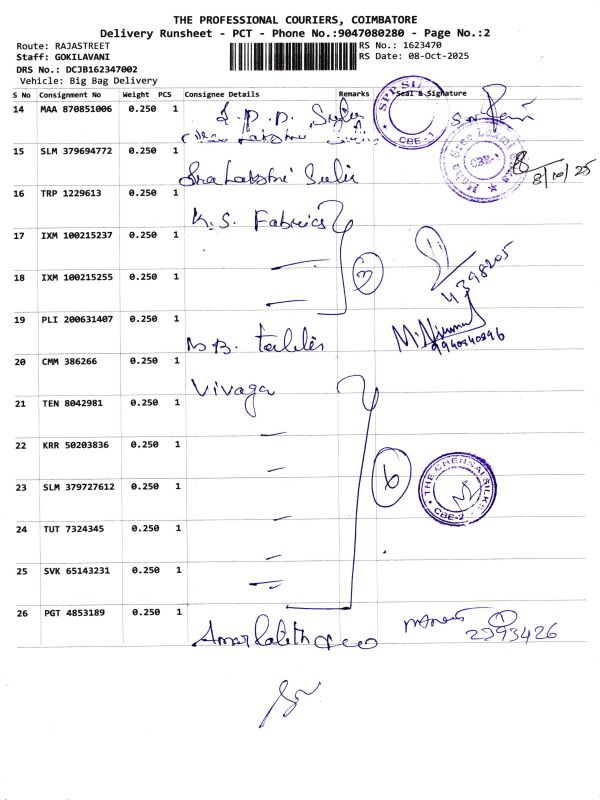 THE PROFESSIONAL COURIERS, COIMBATORE
Delivery Runsheet - PCT - Phone No.:9047080280 - Page No.:2
Route: RAJASTREET
RS No.: 1623470
Staff: GOKILAVANI
RS Date: 08-Oct-2025
DRS No.: DCJB162347002
Vehicle: Big Bag Delivery
S No Consignment No Weight PCS Consignee Details Remarks Seal & Signature
14 MAA 870851006 0.250 1
SPP SIL
CBE-1
15 SLM 379694772 0.250 1
CBE-1
8/10/25
16 TRP 1229613 0.250 1 K.S. Fabrics
17 IXM 100215237 0.250 1
3
18 IXM 100215255 0.250 1
4398205
19 PLI 200631407 0.250 1
9940840896
20 CMM 386266 0.250 1 Vivaga
21 TEN 8042981 0.250 1
22 KRR 50203836 0.250 1
6
THE CHENNAI SILKS
CBE-2
23 SLM 379727612 0.250 1
24 TUT 7324345 0.250 1
25 SVK 65143231 0.250 1
26 PGT 4853189 0.250 1
1
2393426